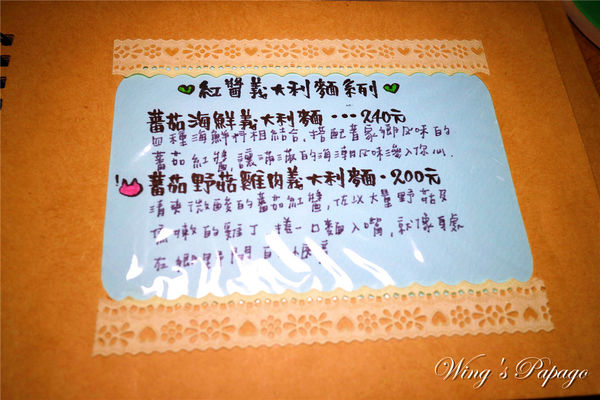 紅醬義大利麵系列
蕃茄海鮮義大利麵 ··· 240元
四種海鮮 相結合,搭配著家鄉風味的
蕃茄紅醬,讓滿滿的海潮風味湧入你心.
蕃茄野菇雞肉義大利麵·200元
清爽微酸的蕃茄紅醬,佐以大量野菇及
嫩的雞丁 捲一口麵入嘴,就像身處
在鄉野間
Wing's Papago